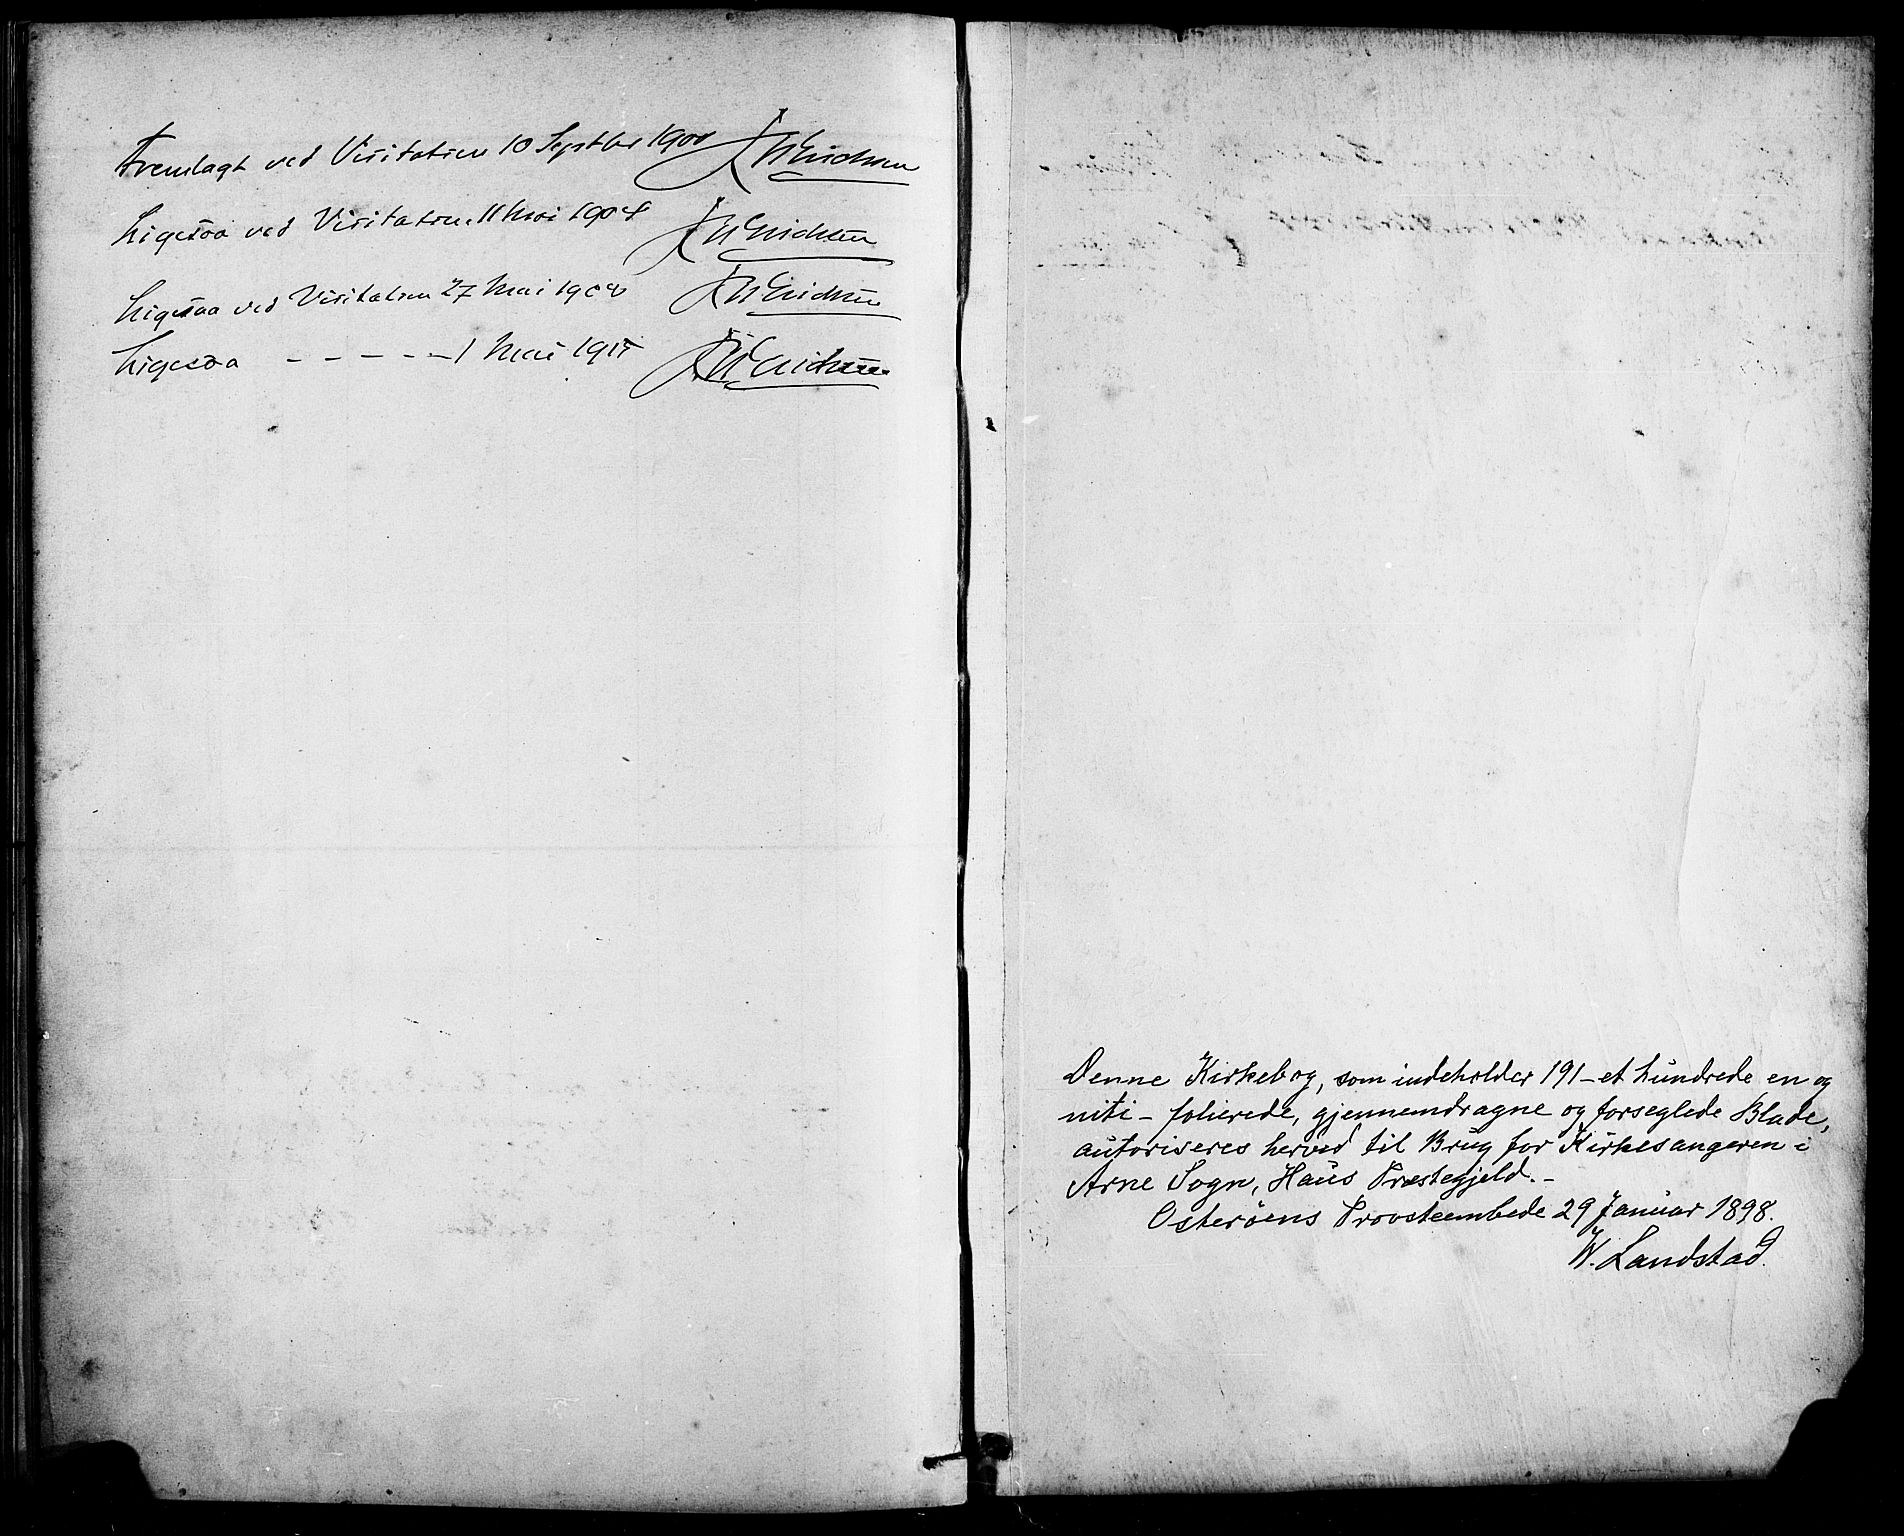 Fremlagt ved Visitatsen 10 Septbr 1900 J W Erichsen
Ligesaa ved Visitatsen 11 Mai 1904 J W Erichsen
Ligesaa ved Visitatsen 27 Mai 1908 J W Erichsen
Ligesaa - - - - - 1 Mai 1915 J W Erichsen
Denne Kirkebog, som indeholder 191 – et hundrede en og
niti – folierede, gjennemdragne og forseglede Blade,
autoriseres herved til Brug for Kirkesangeren i
Arne Sogn, Haus Præstegjeld. –
Osterøens Provsteembede 29 Januar 1898.
W. Landstad.